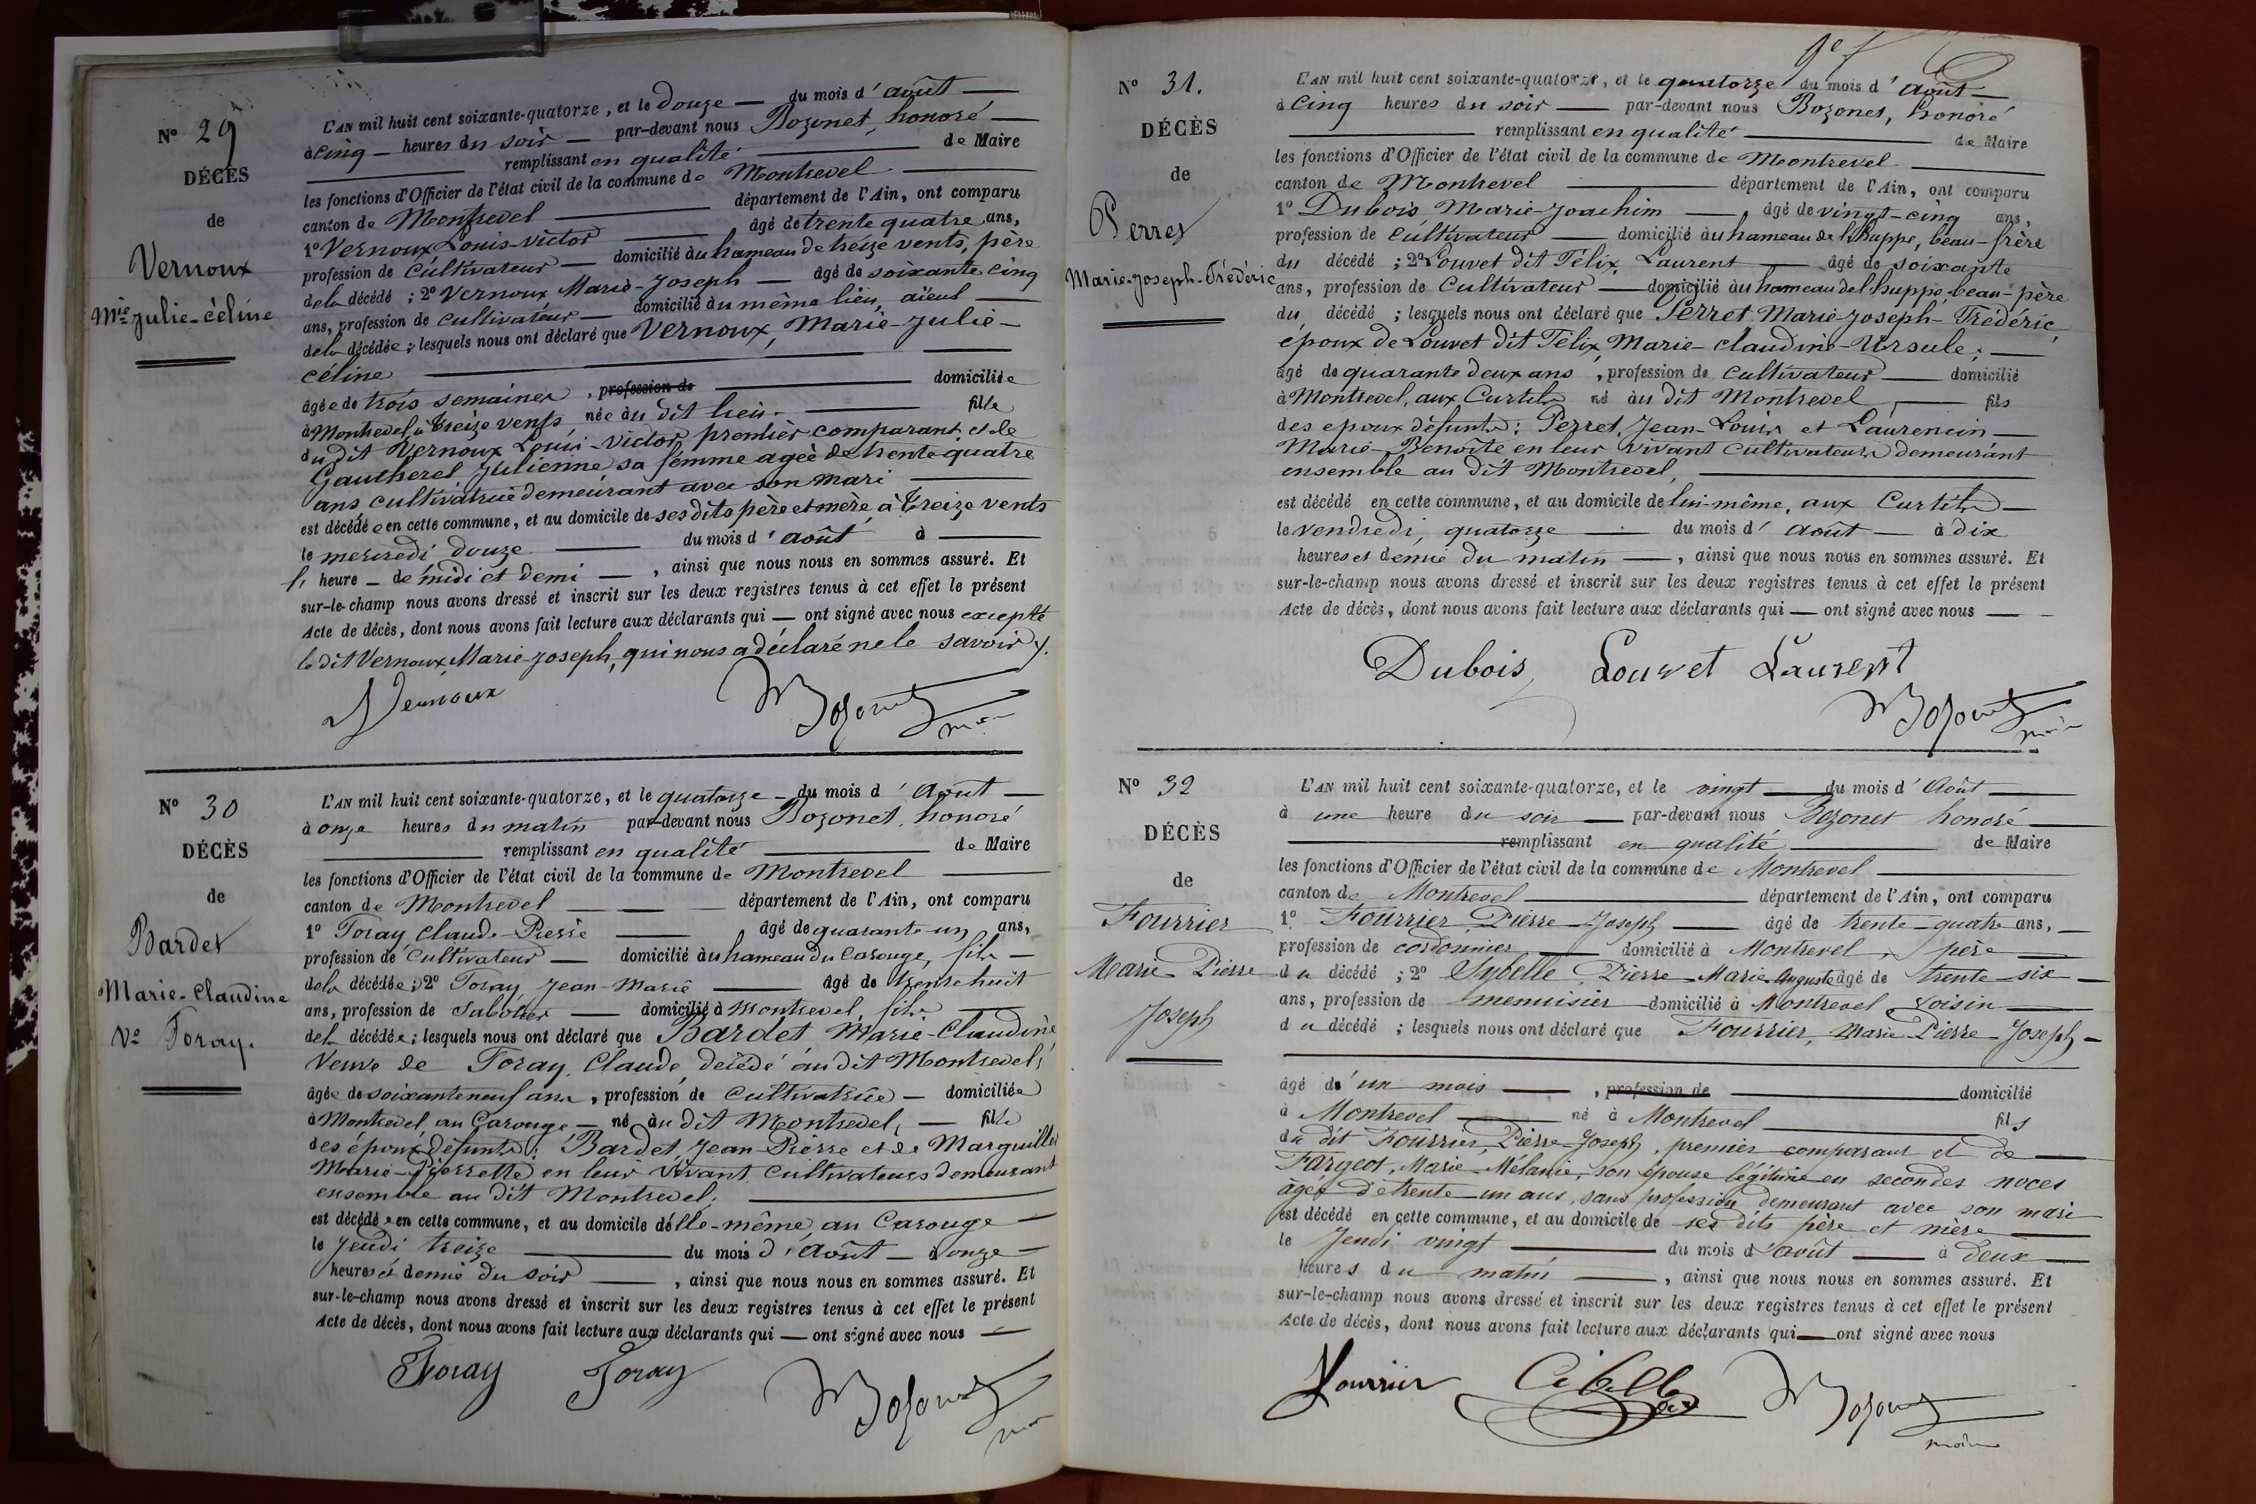 N° 29
DÉCÈS
de
Vernoux
Mie Julie-Céline
L'AN mil huit cent soixante-quatorze, et le douze — du mois d'août —
à cinq — heures du soir — par-devant nous Bozonet, honoré —
remplissant en qualité — de Maire
les fonctions d'Officier de l'état civil de la commune de Montrevel —
canton de Montrevel — département de l'Ain, ont comparu
1° Vernoux Louis-Victor — âgé de trente quatre ans,
profession de Cultivateur — domicilié au hameau de treize vents, père
de la décédé ; 2° Vernoux Marie-Joseph — âgé de soixante cinq
ans, profession de cultivateur — domicilié au même lieu, aïeul —
de la décédée ; lesquels nous ont déclaré que Vernoux, Marie-Julie-
Céline —
âgée de trois semaines, profession de — domiciliée
à Montrevel, à treize vents, née au dit lieu. — fille
du dit Vernoux Louis-Victor premier comparant, et de
Gautherel, Julienne sa femme agée de trente-quatre
ans cultivatrice demeurant avec son mari —
est décédée en cette commune, et au domicile de ses dits père et mère, à treize vents
le mercredi douze — du mois d'août à —
heure — de midi et demi —, ainsi que nous nous en sommes assuré. Et
sur-le-champ nous avons dressé et inscrit sur les deux registres tenus à cet effet le présent
Acte de décès, dont nous avons fait lecture aux déclarants qui — ont signé avec nous excepté
le dit Vernoux Marie-Joseph, qui nous a déclaré ne le savoir
Vernoux Bozonet
N° 30
DÉCÈS
de
Bardet
Marie-Claudine
Ve Foray.
L'AN mil huit cent soixante-quatorze, et le quatorze — du mois d'Août —
à onze heures du matin par-devant nous Bozonet, honoré
remplissant en qualité — de Maire
les fonctions d'Officier de l'état civil de la commune de Montrevel —
canton de Montrevel — département de l'Ain, ont comparu
1° Foray Claude-Pierre — âgé de quarante-un ans,
profession de Cultivateur — domicilié au hameau du Carouge, fils —
de la décédée ; 2° Foray, Jean-Marie — âgé de trente huit
ans, profession de Sabotier — domicilié à Montrevel, fils —
de la décédée ; lesquels nous ont déclaré que Bardet Marie-Claudine
Veuve de Foray, Claude, décédé au dit Montrevel,
âgée de soixante neuf ans, profession de cultivatrice — domiciliée
à Montrevel au Carouge — né au dit Montrevel, — fille
des époux défunts : Bardet, Jean-Pierre et de Marguillet
Marie-Pierrette en leur vivant cultivateurs demeurant
ensemble au dit Montrevel, —
est décédée en cette commune, et au domicile d'elle-même au Carouge —
le Jeudi treize — du mois d'Août — à onze —
heures et demie du soir —, ainsi que nous nous en sommes assuré. Et
sur-le-champ nous avons dressé et inscrit sur les deux registres tenus à cet effet le présent
Acte de décès, dont nous avons fait lecture aux déclarants qui — ont signé avec nous —
Foray Foray Bozonet
N° 31.
DÉCÈS
de
Perret
Marie-Joseph-Frédéric
L'AN mil huit cent soixante-quatorze, et le quatorze du mois d'Août —
à cinq heures du soir — par-devant nous Bozonet, honoré
remplissant en qualité — de Maire
les fonctions d'Officier de l'état civil de la commune de Montrevel —
canton de Montrevel — département de l'Ain, ont comparu
1° Dubois, Marie-Joachim — âgé de vingt-cinq ans,
profession de Cultivateur — domicilié au hameau de l'huppe, beau-frère
du décédé ; 2° Louvet dit Félix, Laurent — âgé de soixante
ans, profession de Cultivateur — domicilié au hameau de l'huppe, beau-père
du décédé ; lesquels nous ont déclaré que Perret Marie-Joseph-Frédéric
époux de Louvet dit Félix, Marie-Claudine-Ursule, —
âgé de quarante deux ans, profession de Cultivateur — domicilié
à Montrevel, aux Curtils né au dit Montrevel, — fils
des epoux défunts : Perret, Jean-Louis et Laurencin —
Marie-Benoîte en leur vivant cultivateurs demeurant
ensemble au dit Montrevel, —
est décédé en cette commune, et au domicile de lui-même, aux Curtils —
le vendredi, quatorze — du mois d'Août — à dix
heures et demie du matin —, ainsi que nous nous en sommes assuré. Et
sur-le-champ nous avons dressé et inscrit sur les deux registres tenus à cet effet le présent
Acte de décès, dont nous avons fait lecture aux déclarants qui — ont signé avec nous —
Dubois Louvet Laurent
Bozonet
N° 32
DÉCÈS
de
Fourrier
Marie Pierre
Joseph
L'AN mil huit cent soixante-quatorze, et le vingt — du mois d'Août —
à une heure du soir — par-devant nous Bozonet honoré —
remplissant en qualité — de Maire
les fonctions d'Officier de l'état civil de la commune de Montrevel —
canton de Montrevel — département de l'Ain, ont comparu
1° Fourrier, Pierre-Joseph — âgé de trente-quatre ans, —
profession de cordonnier — domicilié à Montrevel, père —
du décédé ; 2° Sybelle, Pierre-Marie-Auguste âgé de trente six —
ans, profession de menuisier domicilié à Montrevel, voisin —
du décédé ; lesquels nous ont déclaré que Fourrier, Marie-Pierre-Joseph —
âgé d'un mois —, profession de — domicilié
à Montrevel — né à Montrevel — fils
du dit Fourrier, Pierre-Joseph, premier comparant et de —
Fargeot, Marie-Mélanie, son épouse légitime en secondes noces
âgée de trente-un ans, sans profession demeurant avec son mari
est décédé en cette commune, et au domicile de ses dits père et mère —
le Jeudi vingt — du mois d'août — à deux —
heures du matin —, ainsi que nous nous en sommes assuré. Et
sur-le-champ nous avons dressé et inscrit sur les deux registres tenus à cet effet le présent
Acte de décès, dont nous avons fait lecture aux déclarants qui — ont signé avec nous
Fourrier Cibelle Bozonet